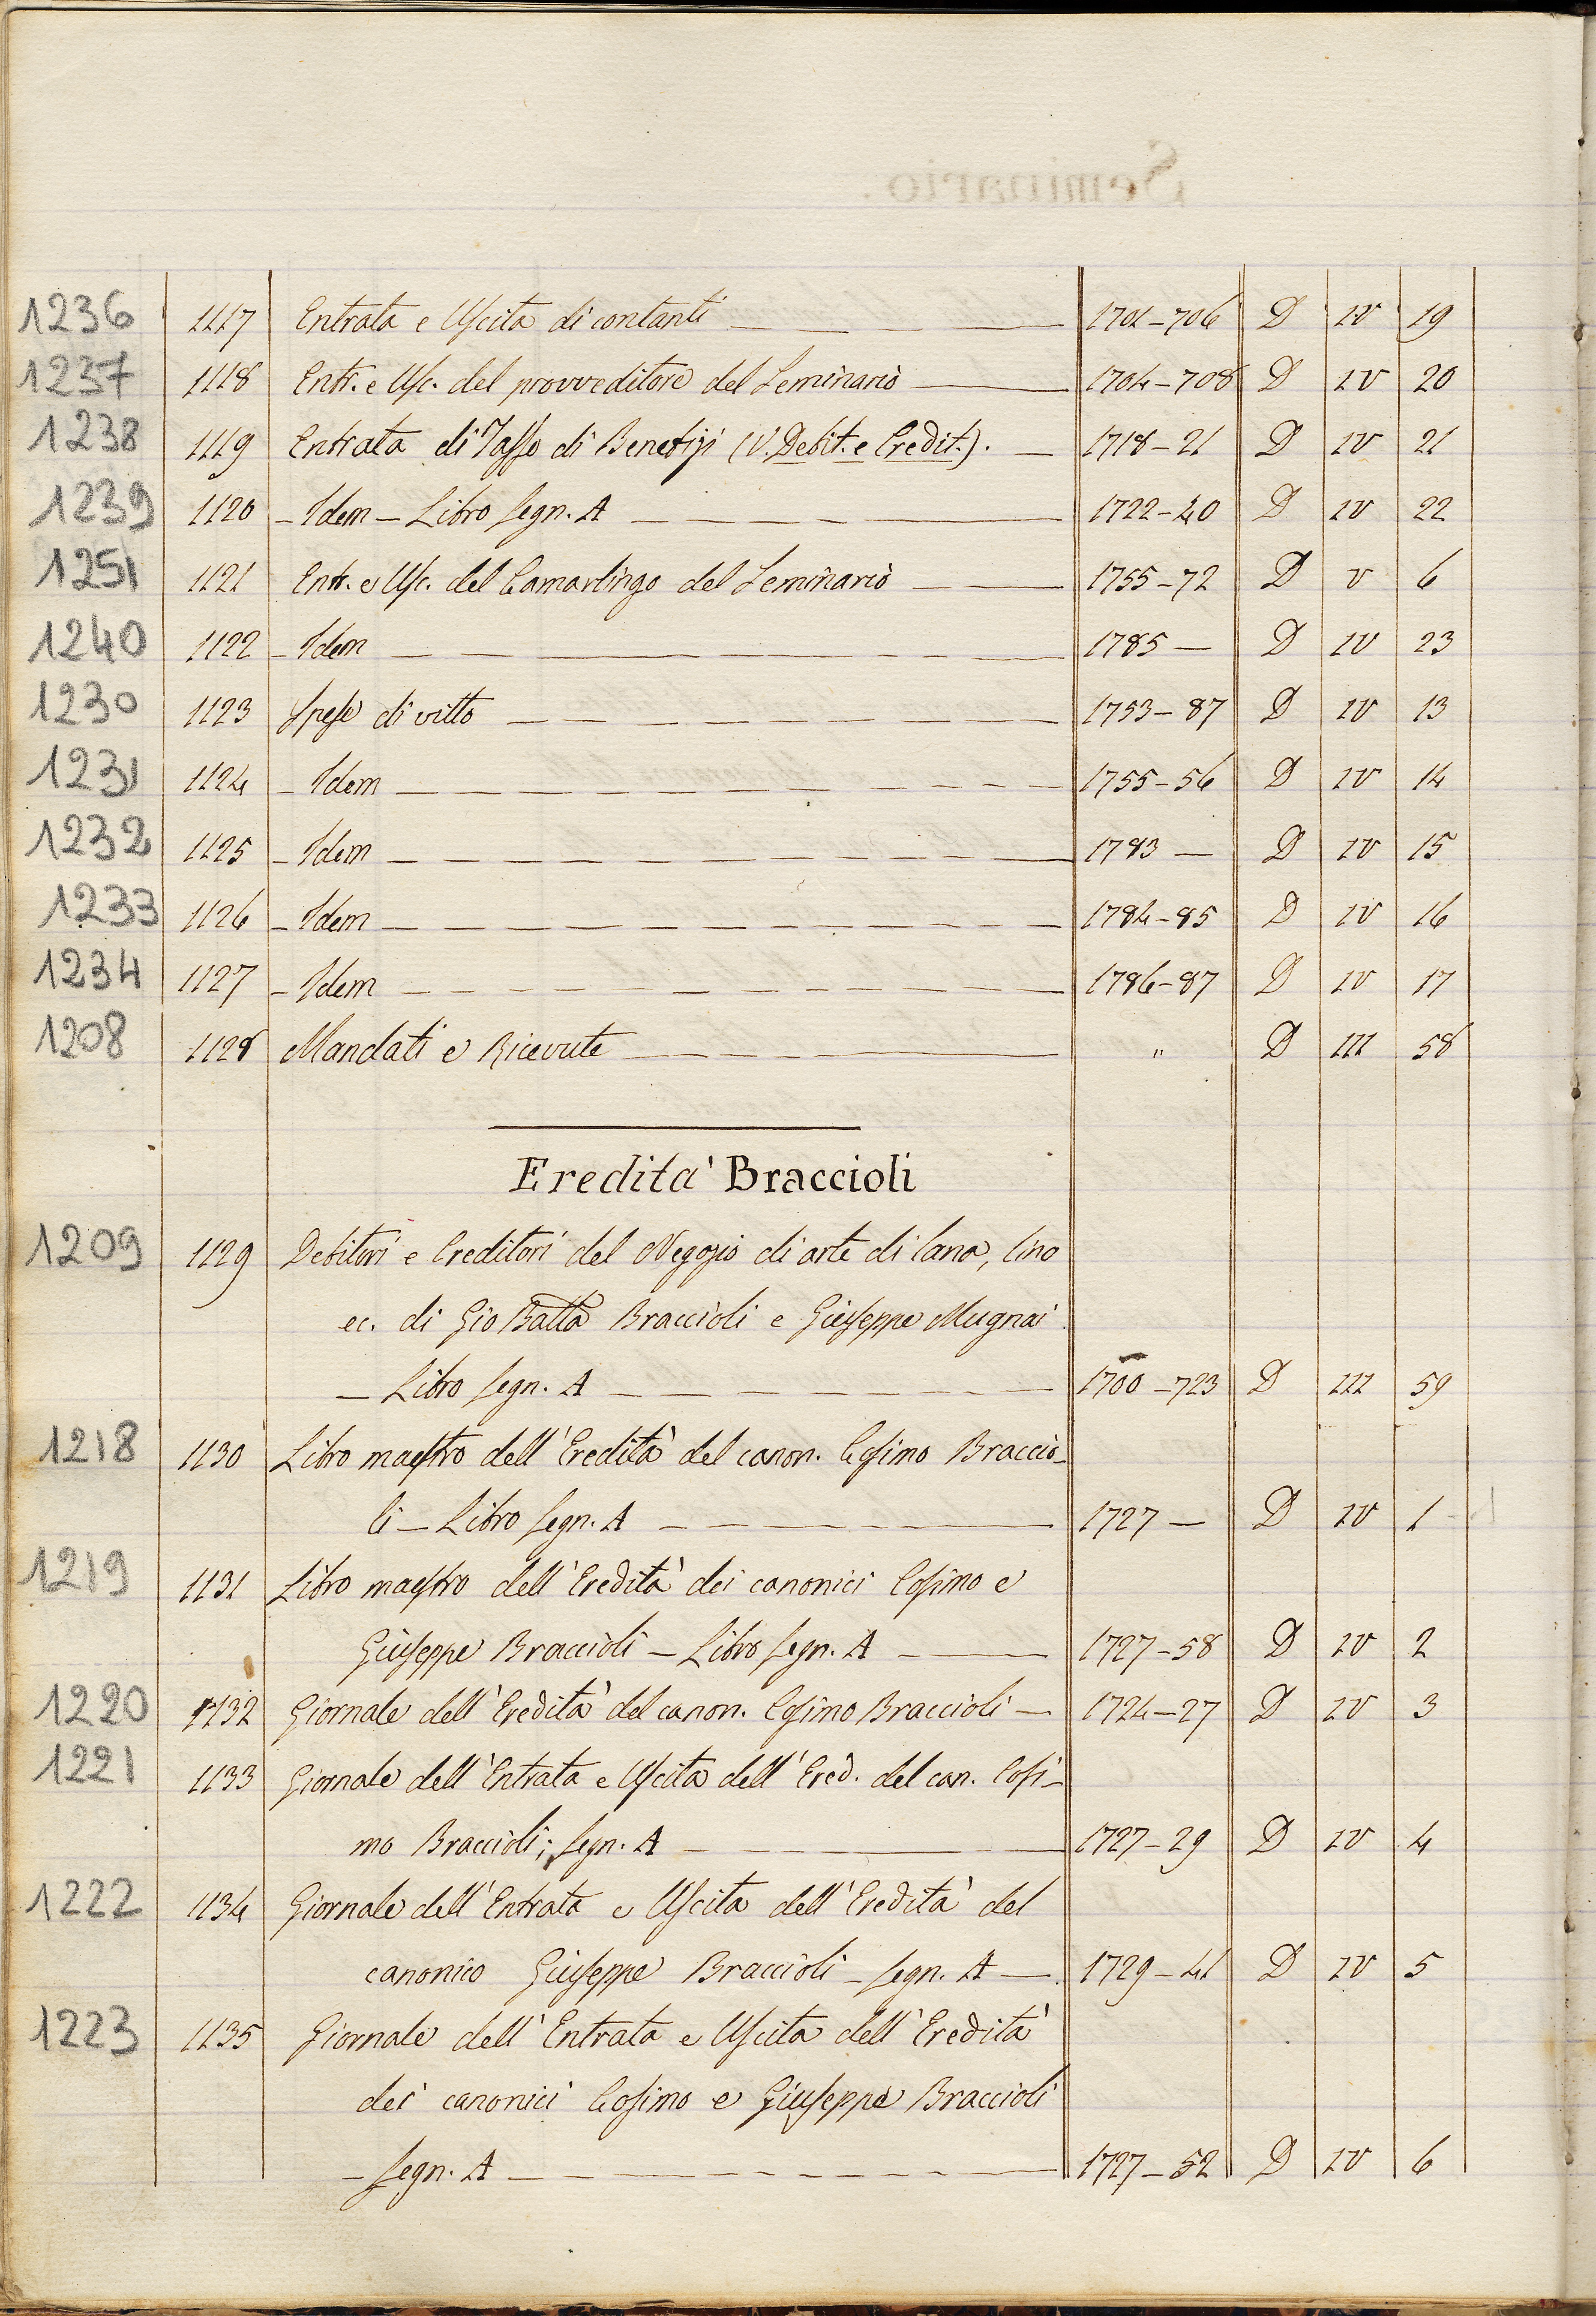 Seminario.
1236 1117 Entrata e Uscita di contanti 1701-706 D IV 19
1237 1118 Entr. e Usc. del provveditore del Seminario 1704-708 D IV 20
1238 1119 Entrata di Tasse di Benefizi (V. Debit. e Credit.). 1718-21 D IV 21
1239 1120 - Idem - Libro segn. A 1722-40 D IV 22
1251 1121 Entr. e Usc. del Camarlingo del Seminario 1755-72 D V 6
1240 1122 - Idem 1785 - D IV 23
1230 1123 Spese di vitto 1753-87 D IV 13
1231 1124 - Idem 1755-56 D IV 14
1232 1125 - Idem 1783 - D IV 15
1233 1126 - Idem 1784-85 D IV 16
1234 1127 - Idem 1786-87 D IV 17
1208 1128 Mandati e Ricevute " D III 58
Eredita' Braccioli
1209 1129 Debitori e Creditori del Negozio di arte di lana, lino
ec. di Gio Batta Braccioli e Giuseppe Mugnai
- Libro segn. A 1700-723 D III 59
1218 1130 Libro maestro dell'Eredità del canon. Cosimo Braccio-
li - Libro segn. A 1727 - D IV 1
1219 1131 Libro maestro dell'Eredità dei canonici Cosimo e
Giuseppe Braccioli - Libro segn. A 1727-58 D IV 2
1220 1132 Giornale dell'Eredità del canon. Cosimo Braccioli - 1724-27 D IV 3
1221 1133 Giornale dell'Entrata e Uscita dell'Ered. del can. Cosi-
mo Braccioli; segn. A 1727-29 D IV 4
1222 1134 Giornale dell'Entrata e Uscita dell'Eredità del
canonico Giuseppe Braccioli - segn. A - 1729-41 D IV 5
1223 1135 Giornale dell'Entrata e Uscita dell'Eredità
dei canonici Cosimo e Giuseppe Braccioli
- segn. A 1727-52 D IV 6